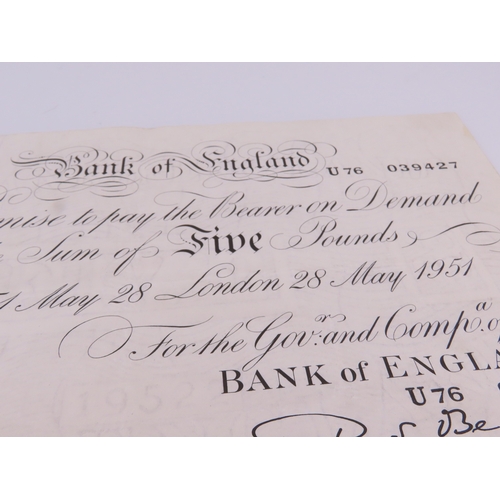 Bank of England U76 039427
mise to pay the Bearer on Demand
Sum of Five Pounds
1 May 28 London 28 May 1951
For the Gov.r and Comp.a of
BANK of ENGLA
U76
Be